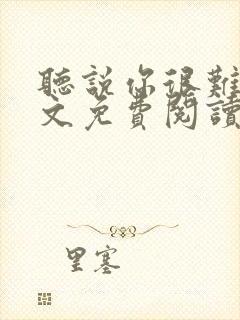 聽說你很難
文免費閱讀
里塞